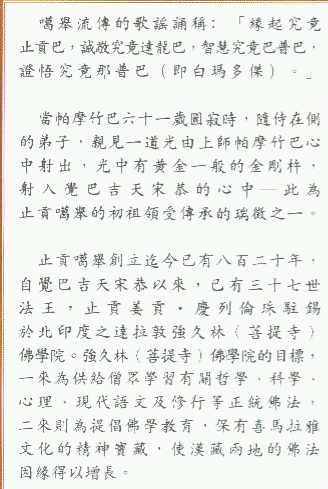 噶舉流傳的歌謠誦稱：「緣起究竟
止貢巴，誠敬究竟達龍巴，智慧究竟巴普巴，
證悟究竟那普巴（即白瑪多傑）。」
當帕摩竹巴六十一歲圓寂時，隨侍在側
的弟子，親見一道光由上師帕摩竹巴心
中射出，光中有黃金一般的金剛杵，
射入覺巴吉天宋恭的心中—此為
止貢噶舉的初祖領受傳承的瑞徵之一。
止貢噶舉創立迄今已有八百二十年，
自覺巴吉天宋恭以來，已有三十七世
法王，止貢姜貢·慶列倫珠駐錫
於北印度之達拉敦強久林（菩提寺）
佛學院。強久林（菩提寺）佛學院的目標，
一來為供給僧眾學習有關哲學、科學、
心理、現代語文及修行等正統佛法，
二來則為提倡佛學教育，保有喜馬拉雅
文化的精神寶藏，使漢藏兩地的佛法
因緣得以增長。